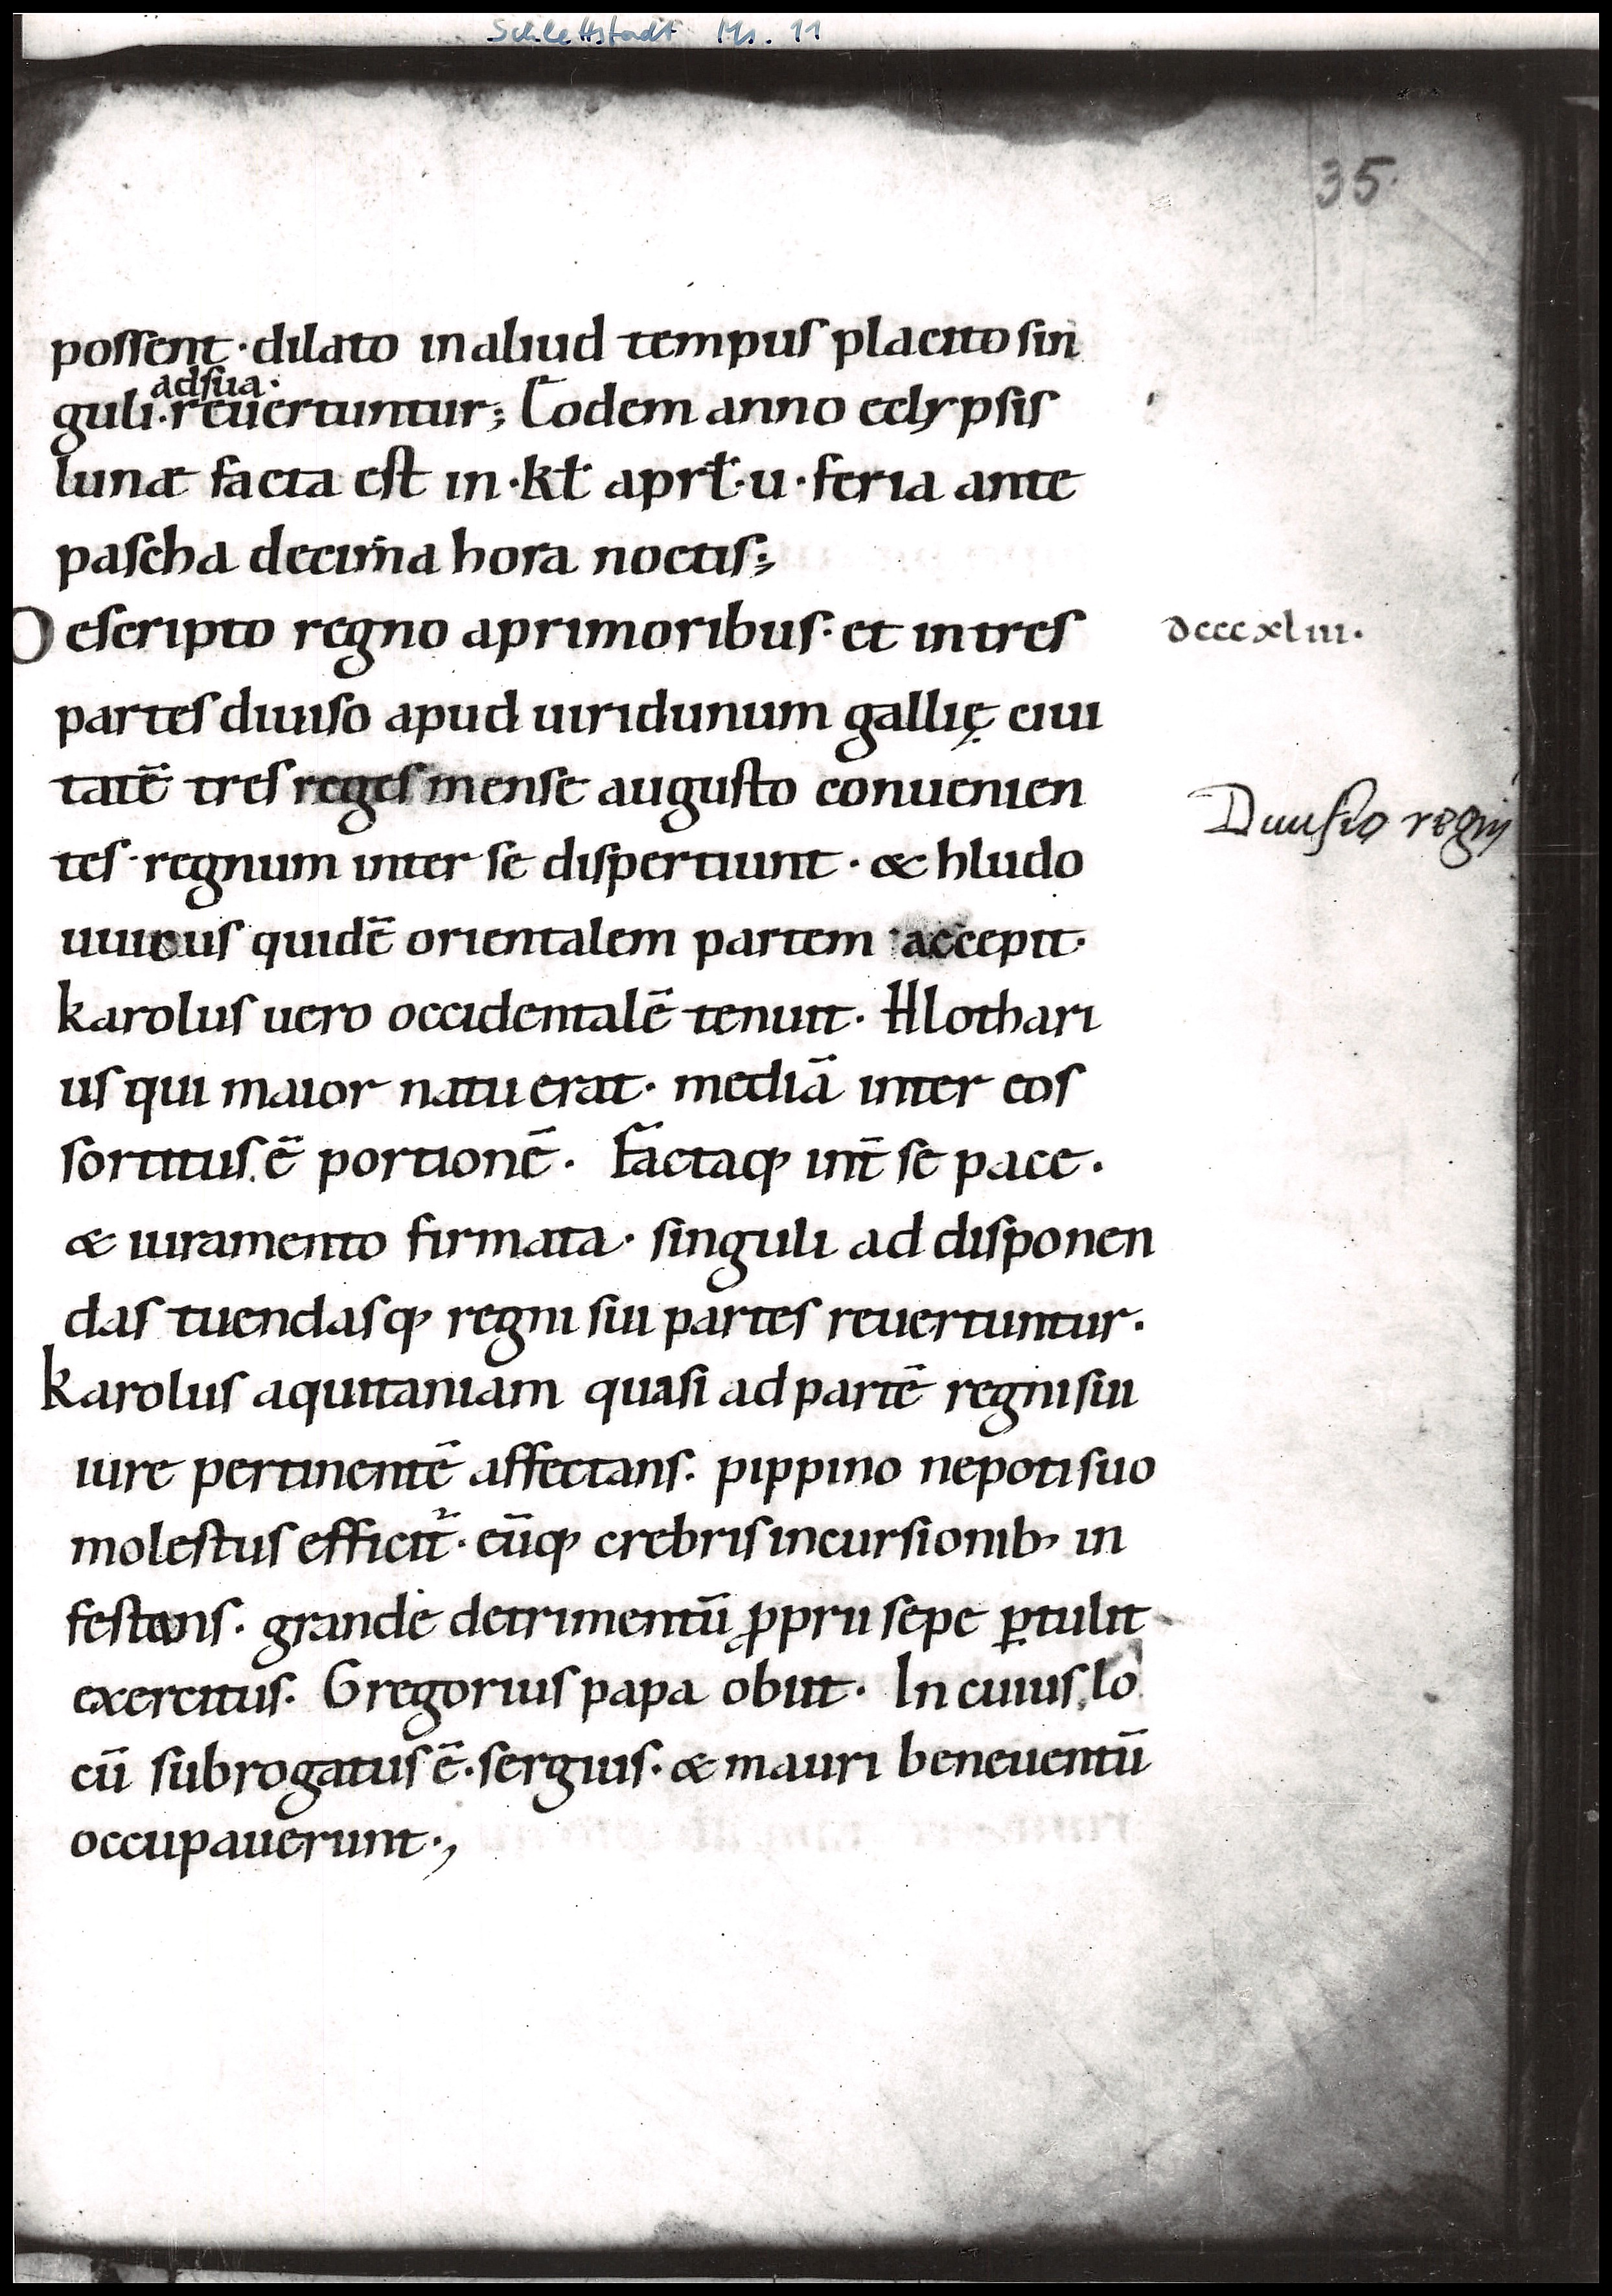 Schlettstadt Ms. 11
35.
possent · dilato in aliud tempus placito sin
adsua ·
guli · reuertuntur; Eodem anno eclypsis
lunæ facta est in · kł aprł · u · feria ante
pascha decima hora noctis;
Descripto regno a primoribus · et in tres
dcccxliii ·
partes diuiso apud uiridunum gallię ciui
tatē tres reges mense augusto conuenien
Diuisio regnj
tes · regnum inter se dispertiunt · & hludo
uuicus quidē orientalem partem accepit ·
karolus uero occidentalē tenuit · Hlothari
us qui maior natu erat · mediā inter eos
sortitus ē portionē · Factaq; int̄ se pace ·
& iuramento firmata · singuli ad disponen
das tuendasq; regni sui partes reuertuntur ·
karolus aquitaniam quasi ad partē regni sui
iure pertinentē affectans · pippino nepoti suo
molestus efficit᷑ · eūq; crebris incursionib; in
festans · grande detrimentū ꝓprii sepe ꝑtulit
exercitus · Gregorius papa obiit · In cuius lo
cū subrogatus ē · sergius · & mauri beneuentū
occupauerunt ·,